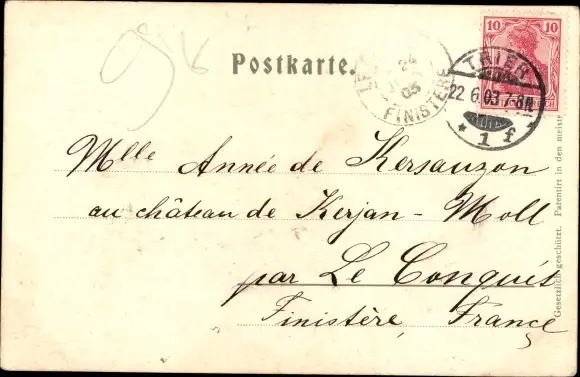 Postkarte.
10 10
TRIER
22 6 03 7-8N.
* 1 f *
24
03
FINISTERE
Mlle Année de Kersauzon
au château de Kerjan - Moll
par Le Conquêt
Finistère, France
Gesetzlich geschützt. Patentirt in den meiste